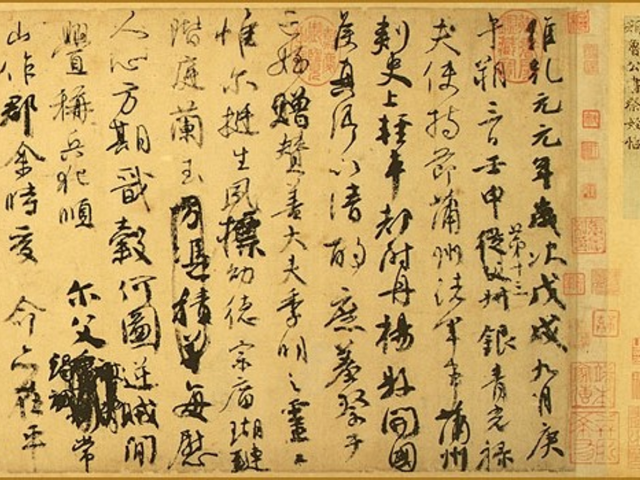 維乾元元年歲次戊戌九月庚
午朔三日壬申第十三從父叔銀青光祿
夫使持節蒲州諸軍事蒲州
刺史上輕車都尉丹楊縣開國
侯真卿以清酌庶羞祭于
亡姪贈贊善大夫季明之靈曰
惟爾挺生夙標幼德宗廟瑚璉
階庭蘭玉方憑積善每慰
人心方期戩穀何圖逆賊間
釁稱兵犯順爾父竭誠常
山作郡余時受命亦在平